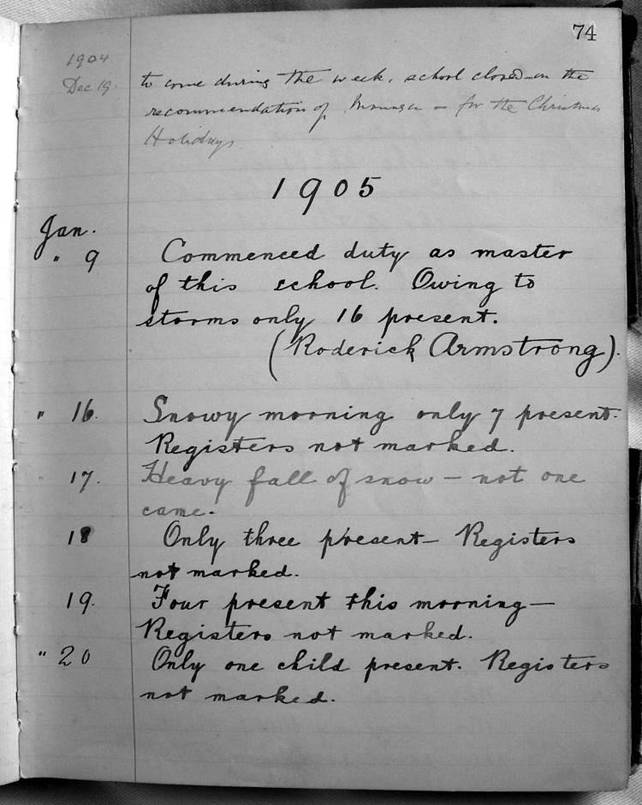 74
1904
Dec 19. to come during the week. School closed on the
recommendation of Manager for the Christmas
Holidays
1905
Jan.
" 9 Commenced duty as master
of this school. Owing to
storms only 16 present.
(Roderick Armstrong).
" 16. Snowy morning only 7 present.
Registers not marked.
" 17. Heavy fall of snow - not one
came.
18 Only three present - Registers
not marked.
19. Four present this morning -
Registers not marked.
" 20 Only one child present. Registers
not marked.